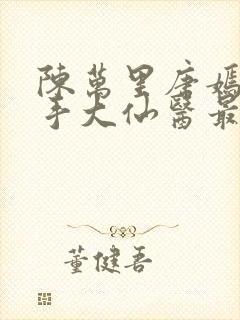 陳萬里唐嫣
手大仙醫最
董健吾